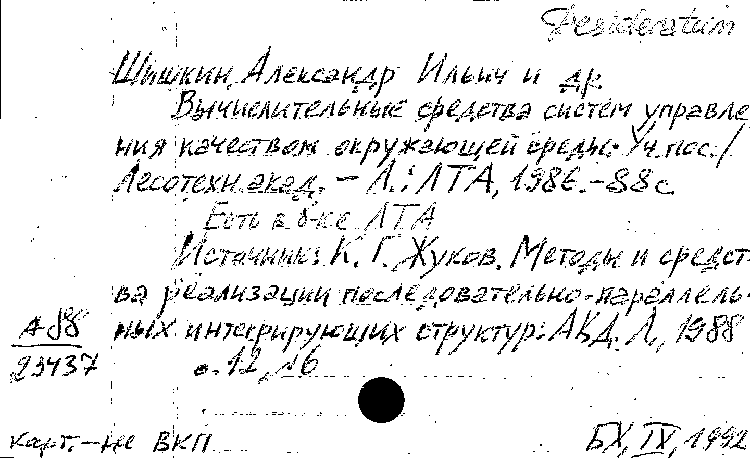 Desideratum
Шишкин, Александр Ильич и др.
Вычислительные средства систем управле
ния качеством окружающей среды: Уч. пос./
Лесотехн. акад. – Л.: ЛТА, 1986. – 88 с.
Есть в б-ке ЛТА
Источник: К. Г. Жуков. Методы и средст-
ва реализации последовательно-параллель-
ных интегрирующих структур: АКД. Л., 1988
А 88
23437
с. 12, №6
карт. – не ВКП
БХ, IX, 1992